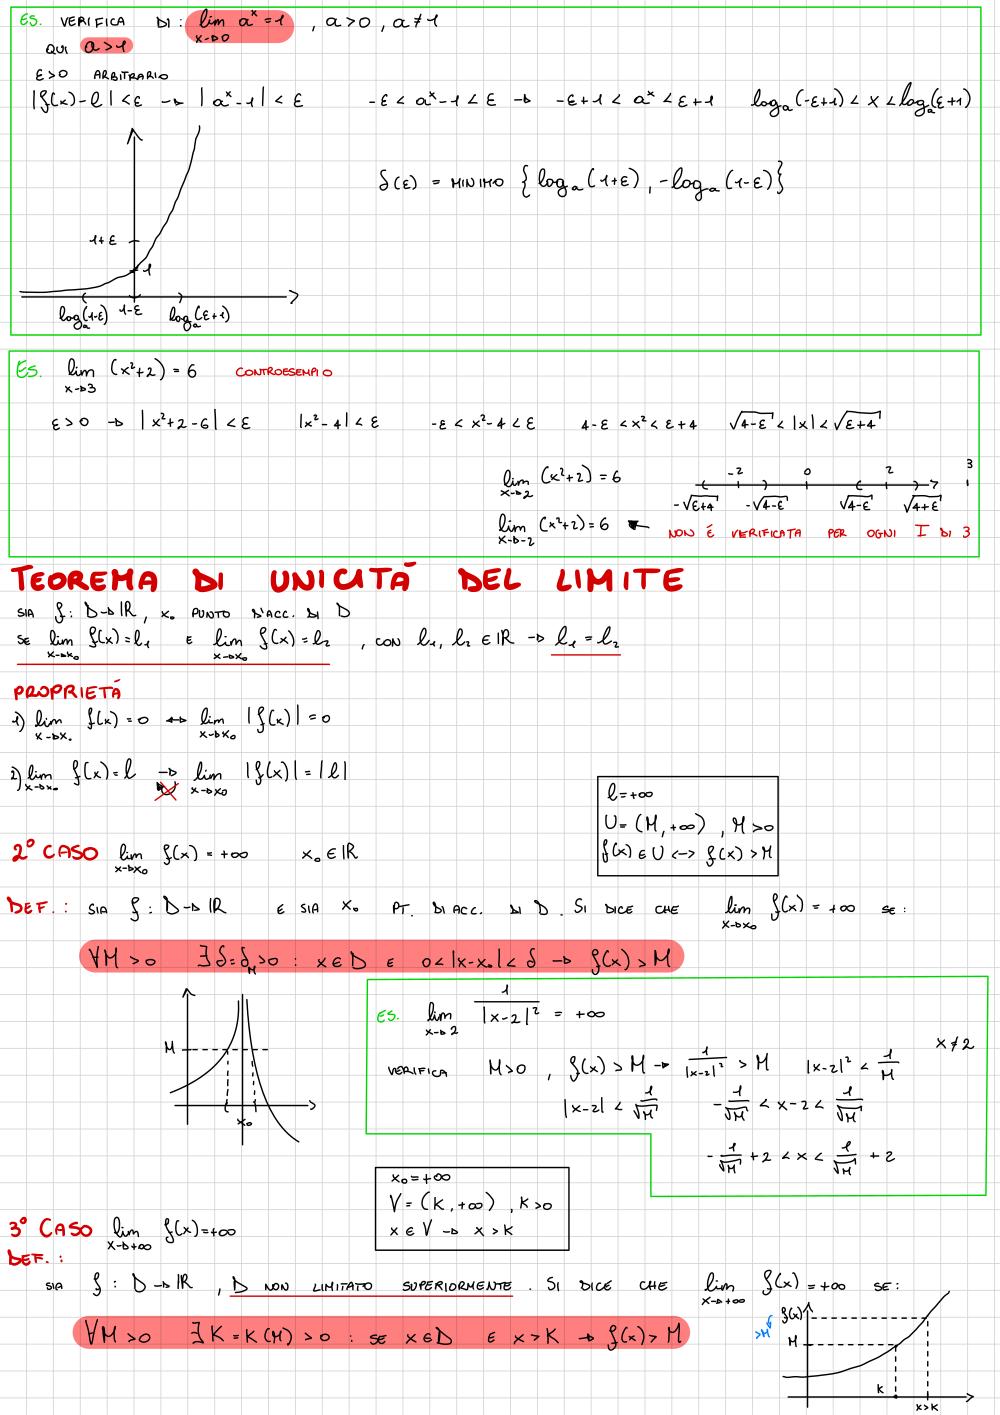 ES. VERIFICA DI: lim x→0 aˣ = 1 , a>0 , a≠1
QUI a>1
ε>0 ARBITRARIO
|f(x)-l|<ε → |aˣ-1|<ε -ε<aˣ-1<ε → -ε+1<aˣ<ε+1 logₐ(-ε+1)<x<logₐ(ε+1)
δ(ε) = MINIMO {logₐ(1+ε), -logₐ(1-ε)}
1+ε
1
logₐ(1-ε) 1-ε logₐ(ε+1)
ES. lim x→3 (x²+2) = 6 CONTROESEMPIO
ε>0 → |x²+2-6|<ε |x²-4|<ε -ε<x²-4<ε 4-ε<x²<ε+4 √4-ε<|x|<√ε+4
lim x→2 (x²+2) = 6 -2 0 2 3
-√ε+4 -√4-ε √4-ε √4+ε
lim x→-2 (x²+2) = 6 NON É VERIFICATA PER OGNI I DI 3
TEOREMA DI UNICITÁ DEL LIMITE
SIA f: D→ℝ, x₀ PUNTO D'ACC. DI D
SE lim x→x₀ f(x)=l₁ E lim x→x₀ f(x)=l₂ , CON l₁, l₂ ∈ ℝ → l₁ = l₂
PROPRIETÁ
1) lim x→x₀ f(x)=0 ↔ lim x→x₀ |f(x)|=0
2) lim x→x₀ f(x)=l → lim x→x₀ |f(x)|=|l|
l=+∞
U=(M,+∞) , M>0
f(x)∈U <-> f(x)>M
2° CASO lim x→x₀ f(x)=+∞ x₀∈ℝ
DEF.: SIA f: D→ℝ E SIA x₀ PT. DI ACC. DI D. SI DICE CHE lim x→x₀ f(x)=+∞ SE:
∀M>0 ∃δ=δ_M>0 : x∈D E 0<|x-x₀|<δ → f(x)>M
M
x₀
ES. lim x→2 1/|x-2|² = +∞
x≠2
VERIFICA M>0 , f(x)>M → 1/|x-2|² > M |x-2|² < 1/M
|x-2| < 1/√M -1/√M < x-2 < 1/√M
-1/√M +2 < x < 1/√M +2
x₀=+∞
V=(K,+∞) , K>0
x∈V → x>K
3° CASO lim x→+∞ f(x)=+∞
DEF.:
SIA f: D→ℝ , D NON LIMITATO SUPERIORMENTE. SI DICE CHE lim x→+∞ f(x)=+∞ SE:
∀M>0 ∃K=K(M)>0 : SE x∈D E x>K → f(x)>M
f(x)
>M
M
K x>K